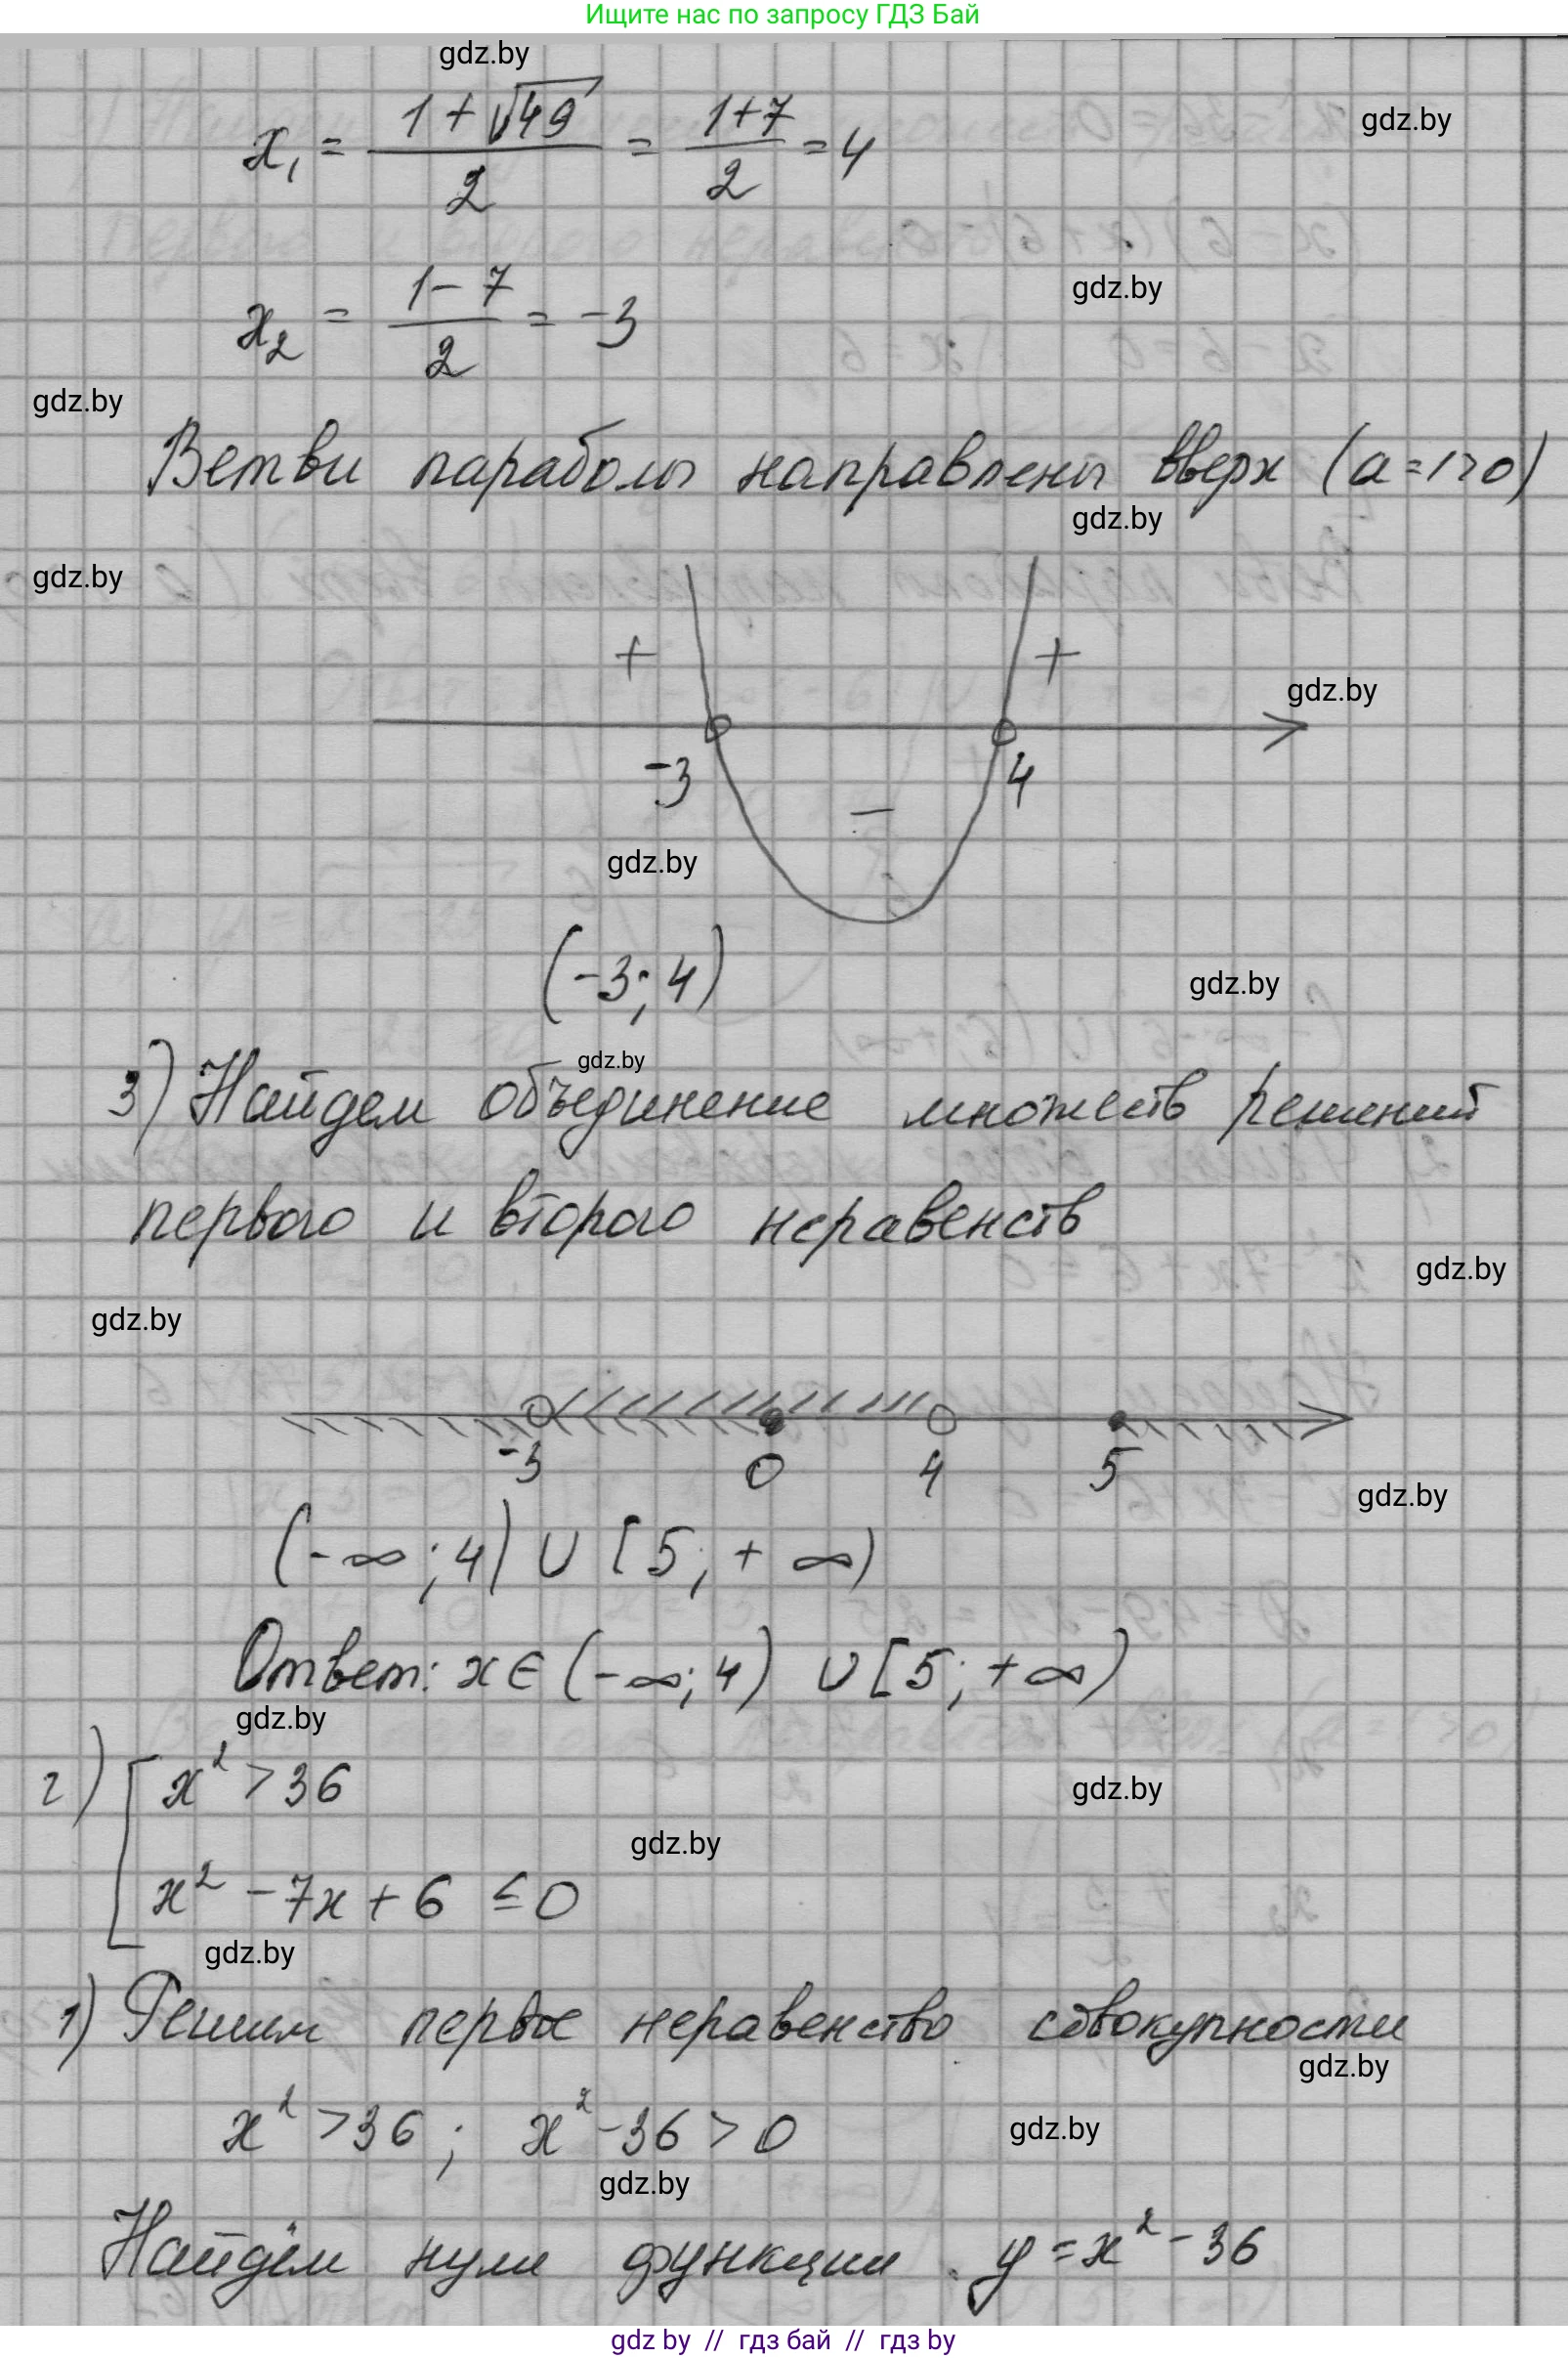 Ищите нас по запросу ГДЗ Бай
gdz.by
x₁ = (1 + √49)/2 = (1+7)/2 = 4
gdz.by
gdz.by
x₂ = (1 - 7)/2 = -3
gdz.by
Ветви параболы направлены вверх (a=1>0)
gdz.by
gdz.by
+ +
gdz.by
-3 4
−
gdz.by
(-3; 4)
gdz.by
gdz.by
3) Найдем объединение множеств решений
первого и второго неравенств
gdz.by
gdz.by
-3 0 4 5
gdz.by
(-∞; 4) ∪ [5; +∞)
Ответ: x∈(-∞; 4) ∪ [5; +∞)
gdz.by
г) [ x² > 36
gdz.by
gdz.by
x² - 7x + 6 ≤ 0
gdz.by
1) Решим первое неравенство совокупности
gdz.by
x² > 36; x² - 36 > 0
gdz.by
gdz.by
Найдём нули функции y = x² - 36
gdz by // гдз бай // гдз by